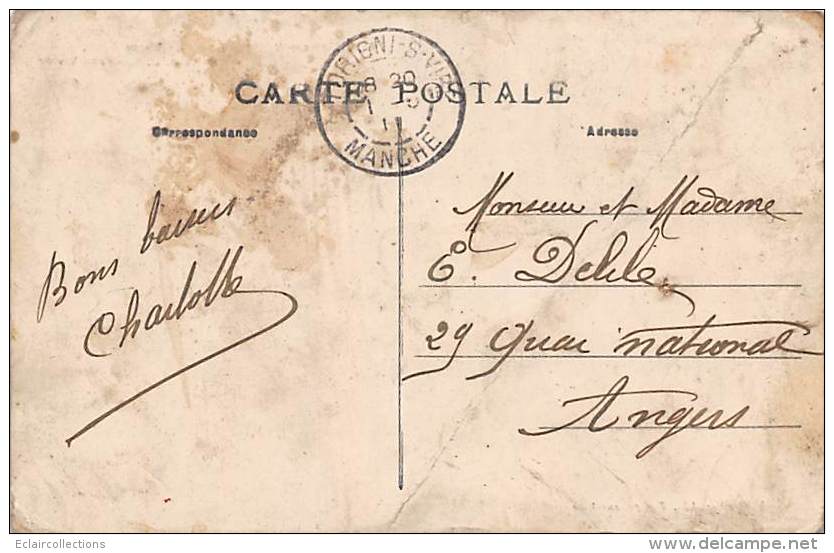 CARTE POSTALE
TORIGNI-S-VIRE
8 30
MANCHE
Correspondance
Adresse
Bons baisers
Charlotte
Monsieur et Madame
E. Delile
29 Quai National
Angers
Eclaircollections
www.delcampe.net